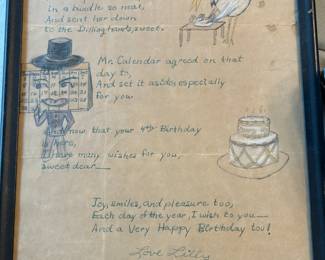 In a bundle so neat,
And sent her down
to the Dillingham's, sweet.
Mr. Calendar agreed on that
day to,
And set it aside, especially
for you.
And now that your 4th Birthday
is here,
I have many wishes for you,
sweet dear—
Joy, smiles, and pleasure too,
Each day of the year, I wish to you—
And a Very Happy Birthday too!
Love Lilly